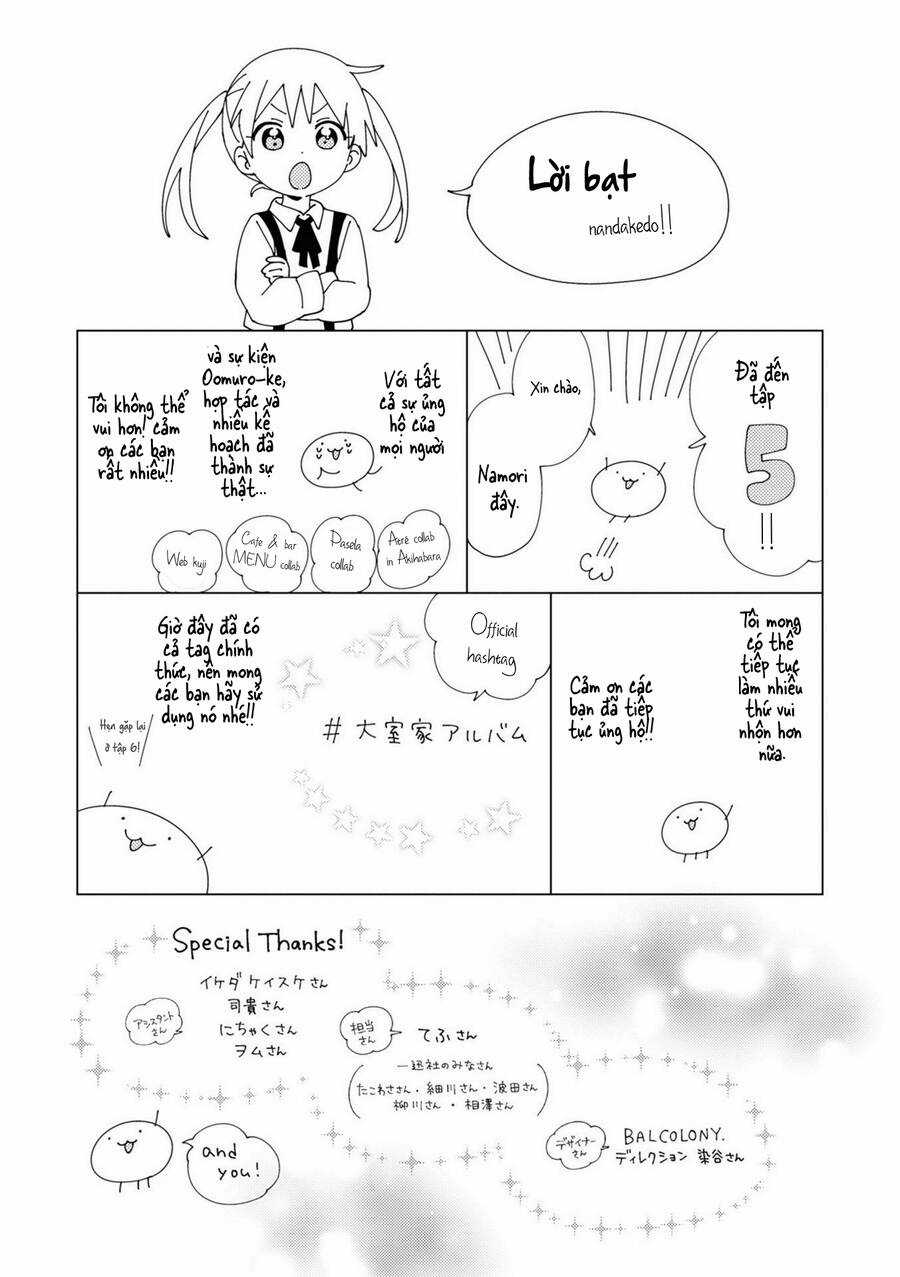 Lời bạt
nandakedo!!
Đã đến
tập
5
!!
Xin chào,
Namori
đây.
Với tất
cả sự ủng
hộ của
mọi người
và sự kiện
Oomuro-ke,
hợp tác và
nhiều kế
hoạch đã
thành sự
thật...
Tôi không thể
vui hơn! cảm
ơn các bạn
rất nhiều!!
Atré collab
in Akihabara
Pasela
collab
Cafe & bar
MENU collab
Web kuji
Tôi mong
có thể
tiếp tục
làm nhiều
thứ vui
nhộn hơn
nữa.
Cảm ơn các
bạn đã tiếp
tục ủng hộ!!
Official
hashtag
#大室家アルバム
Giờ đây đã có
cả tag chính
thức, nên mong
các bạn hãy sử
dụng nó nhé!!
Hẹn gặp lại
ở tập 6!
Special Thanks!
アシスタント
さん
イケダケイスケさん
司貴さん
にちゃくさん
ヲムさん
担当
さん
てふさん
一迅社のみなさん
(たこわささん・細川さん・波田さん
柳川さん・相澤さん)
デザイナー
さん
BALCOLONY.
ディレクション 染谷さん
and
you!